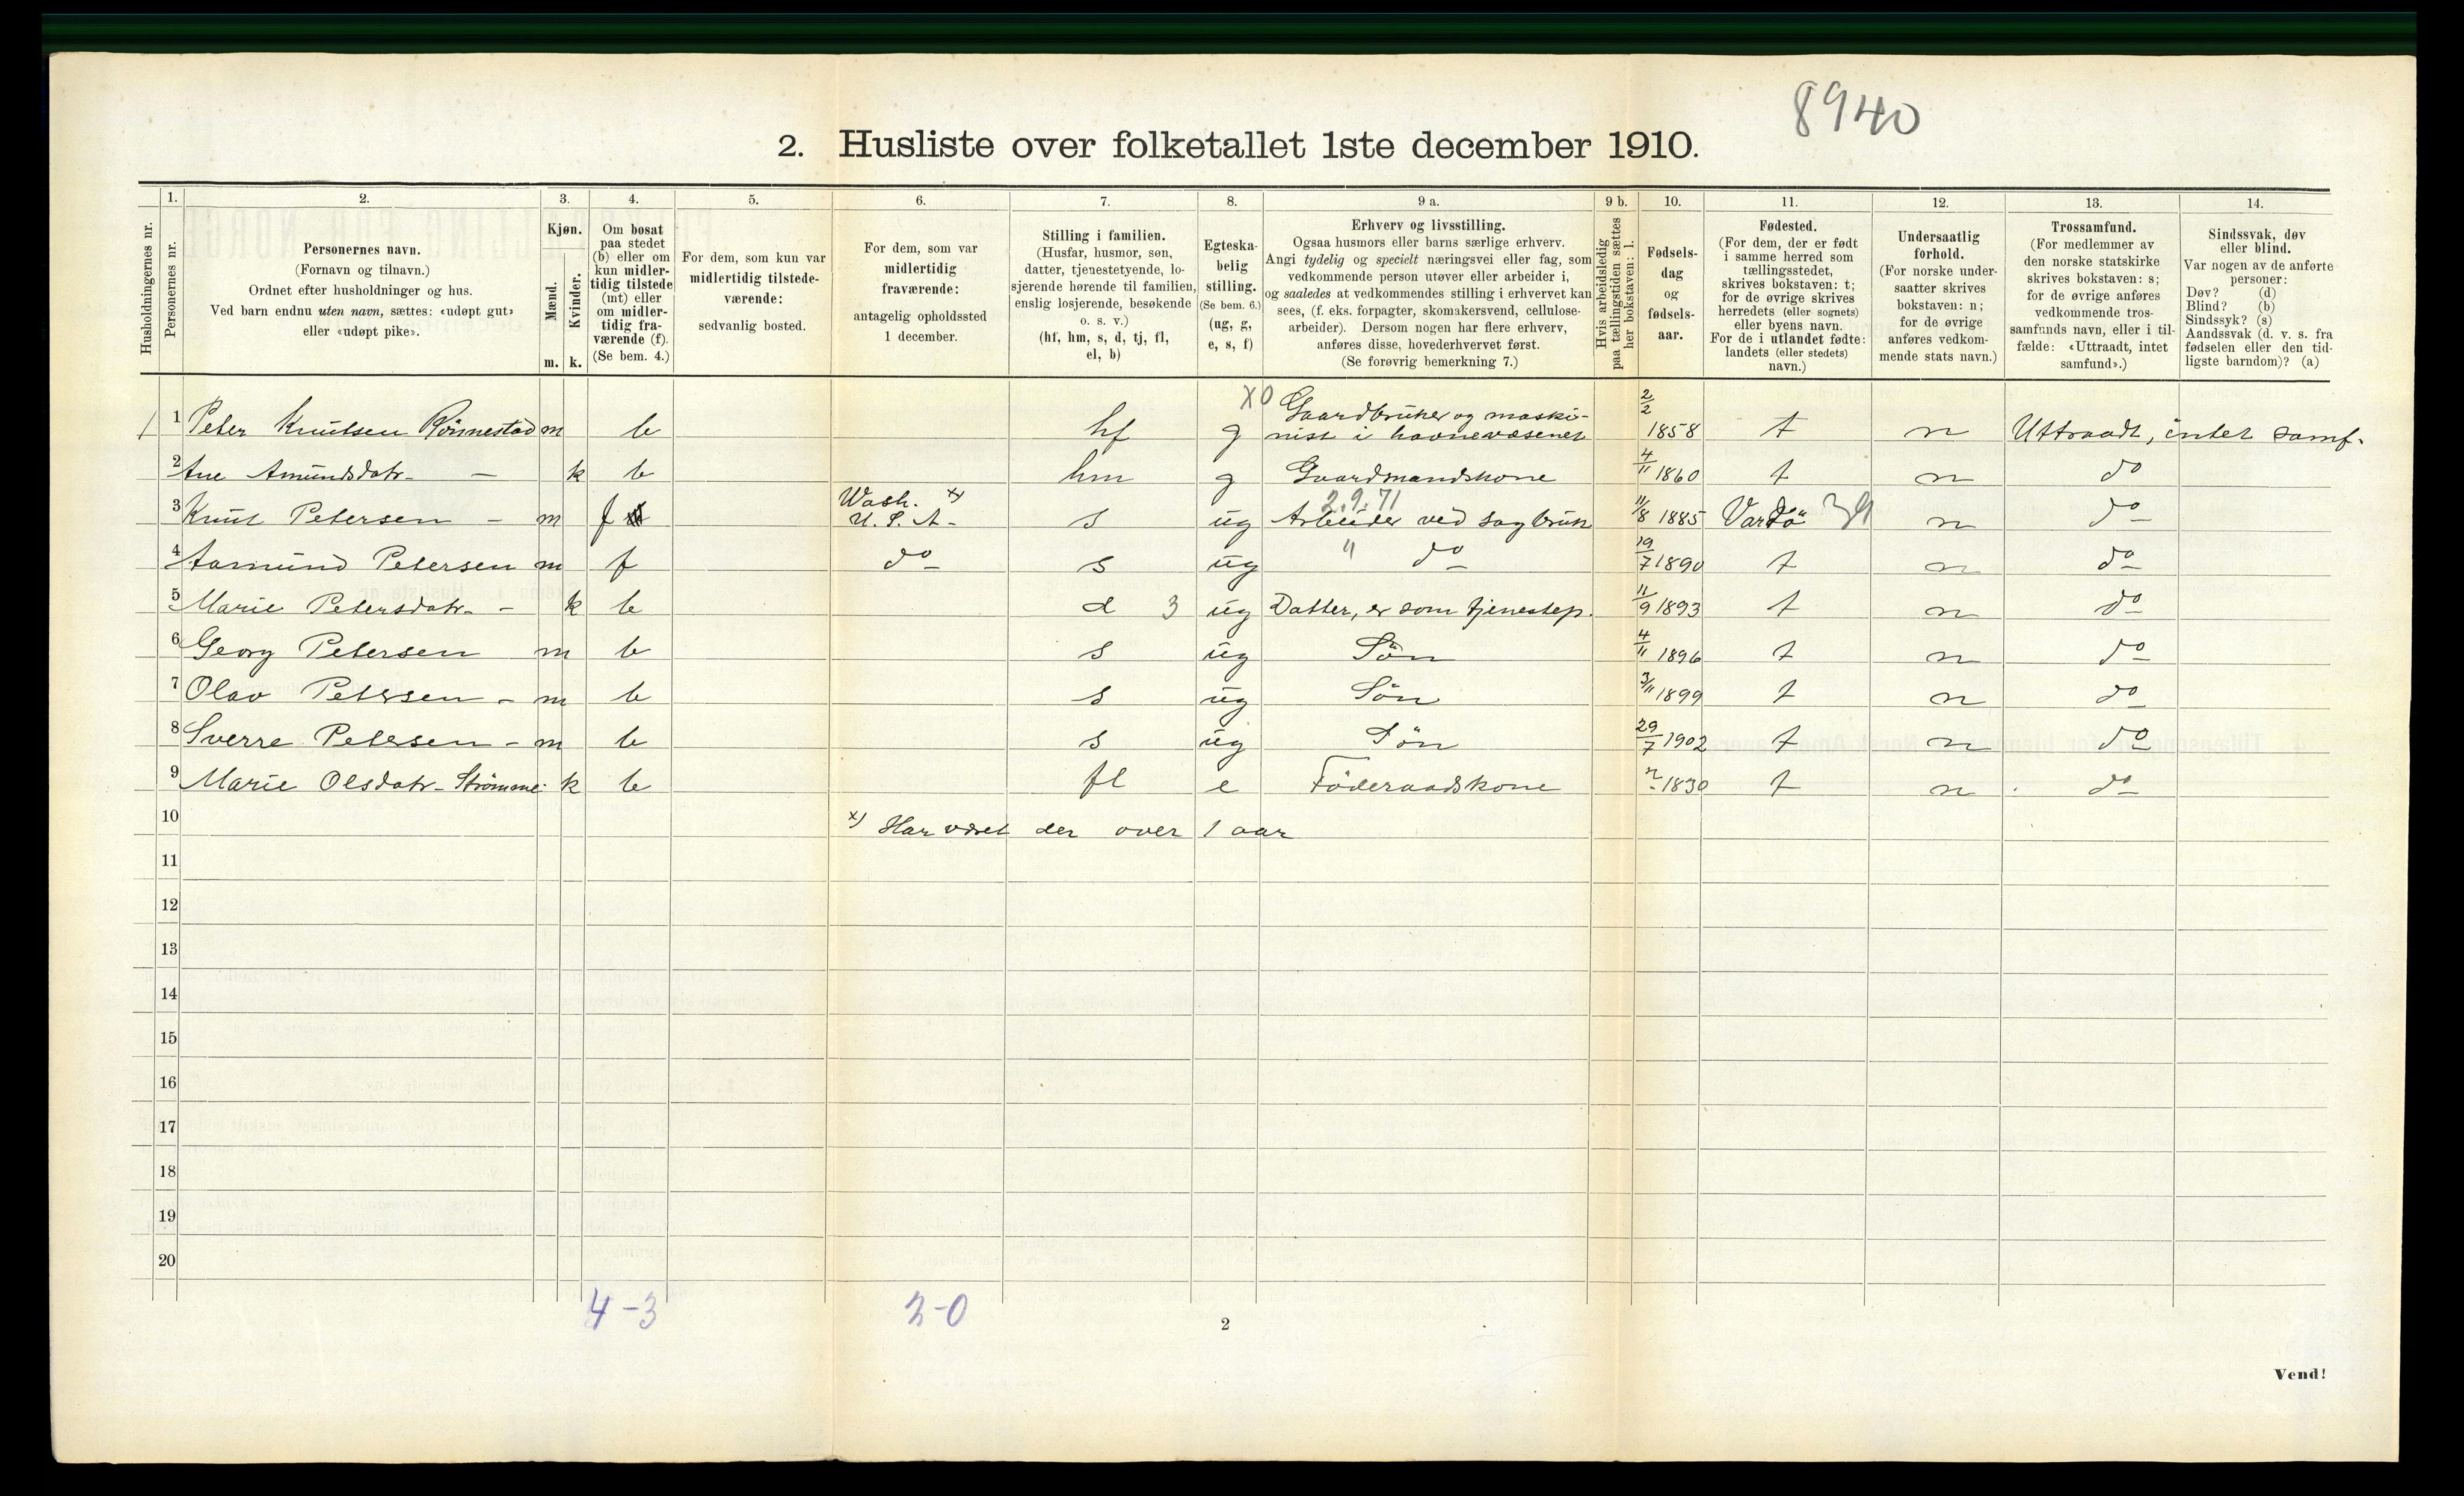 8940
2. Husliste over folketallet 1ste december 1910.
Husholdningernes nr.
1. Personernes nr.
2. Personernes navn. (Fornavn og tilnavn.) Ordnet efter husholdninger og hus. Ved barn endnu uten navn, sættes: «udøpt gut» eller «udøpt pike».
3. Kjøn. Mænd. m. Kvinder. k.
4. Om bosat paa stedet (b) eller om kun midler-tidig tilstede (mt) eller om midler-tidig fra-værende (f). (Se bem. 4.)
5. For dem, som kun var midlertidig tilstede-værende: sedvanlig bosted.
6. For dem, som var midlertidig fraværende: antagelig opholdssted 1 december.
7. Stilling i familien. (Husfar, husmor, søn, datter, tjenestetyende, lo-sjerende hørende til familien, enslig losjerende, besøkende o. s. v.) (hf, hm, s, d, tj, fl, el, b)
8. Egteska-belig stilling. (Se bem. 6.) (ug, g, e, s, f)
9 a. Erhverv og livsstilling. Ogsaa husmors eller barns særlige erhverv. Angi tydelig og specielt næringsvei eller fag, som vedkommende person utøver eller arbeider i, og saaledes at vedkommendes stilling i erhvervet kan sees, (f. eks. forpagter, skomakersvend, cellulose-arbeider). Dersom nogen har flere erhverv, anføres disse, hovederhvervet først. (Se forøvrig bemerkning 7.)
9 b. Hvis arbeidsledig paa tællingstiden sættes her bokstaven: l.
10. Fødsels-dag og fødsels-aar.
11. Fødested. (For dem, der er født i samme herred som tællingsstedet, skrives bokstaven: t; for de øvrige skrives herredets (eller sognets) eller byens navn. For de i utlandet fødte: landets (eller stedets) navn.)
12. Undersaatlig forhold. (For norske under-saatter skrives bokstaven: n; for de øvrige anføres vedkom-mende stats navn.)
13. Trossamfund. (For medlemmer av den norske statskirke skrives bokstaven: s; for de øvrige anføres vedkommende tros-samfunds navn, eller i til-fælde: «Uttraadt, intet samfund».)
14. Sindssvak, døv eller blind. Var nogen av de anførte personer: Døv? (d) Blind? (b) Sindssyk? (s) Aandssvak (d. v. s. fra fødselen eller den tid-ligste barndom)? (a)
1 1 Peter Knutsen Rönnestad m b hf g X0 Gaardbruker og maski-nist i havnevæsenet 2/2 1858 t n Uttraadt, intet samf.
2 Ane Amundsdatr. — k b hm g Gaardmandskone 4/11 1860 t n do
3 Knut Petersen - m f Wash. x) U.S.A- s ug 2.9.71 Arbeider ved sagbruk 11/8 1885 Vardö n do
4 Aamund Petersen m f do s ug " do 19/7 1890 t n do
5 Marie Petersdatr. - k b d 3 ug Datter, er som tjenestep. 11/9 1893 t n do
6 Georg Petersen m b s ug Sön 4/11 1896 t n do
7 Olav Petersen - m b s ug Sön 3/11 1899 t n do
8 Sverre Petersen - m b s ug Sön 29/7 1902 t n do
9 Marie Olsdatr. Strömme k b fl e Föderaadskone 1830 t n do
10 x) Har været der over 1 aar
11
12
13
14
15
16
17
18
19
20
4-3 2-0
2
Vend!